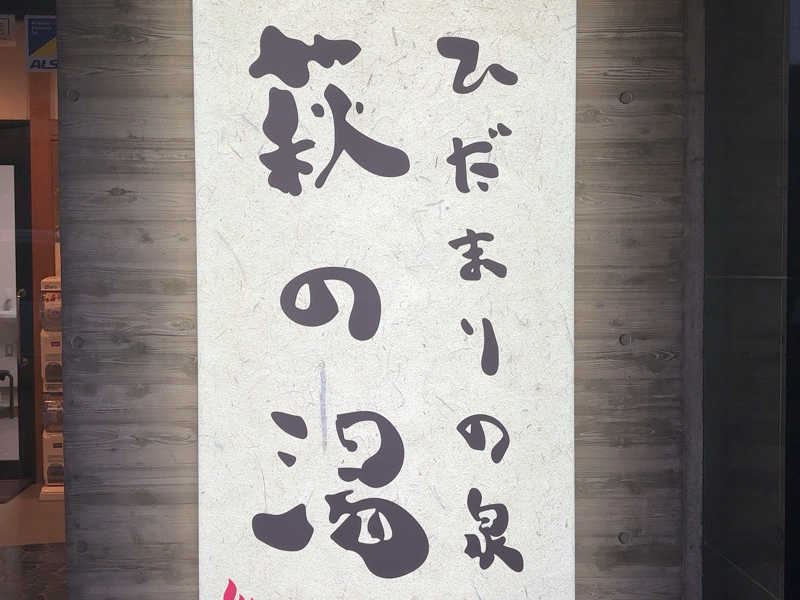 ひだまりの泉
萩の湯
ALS